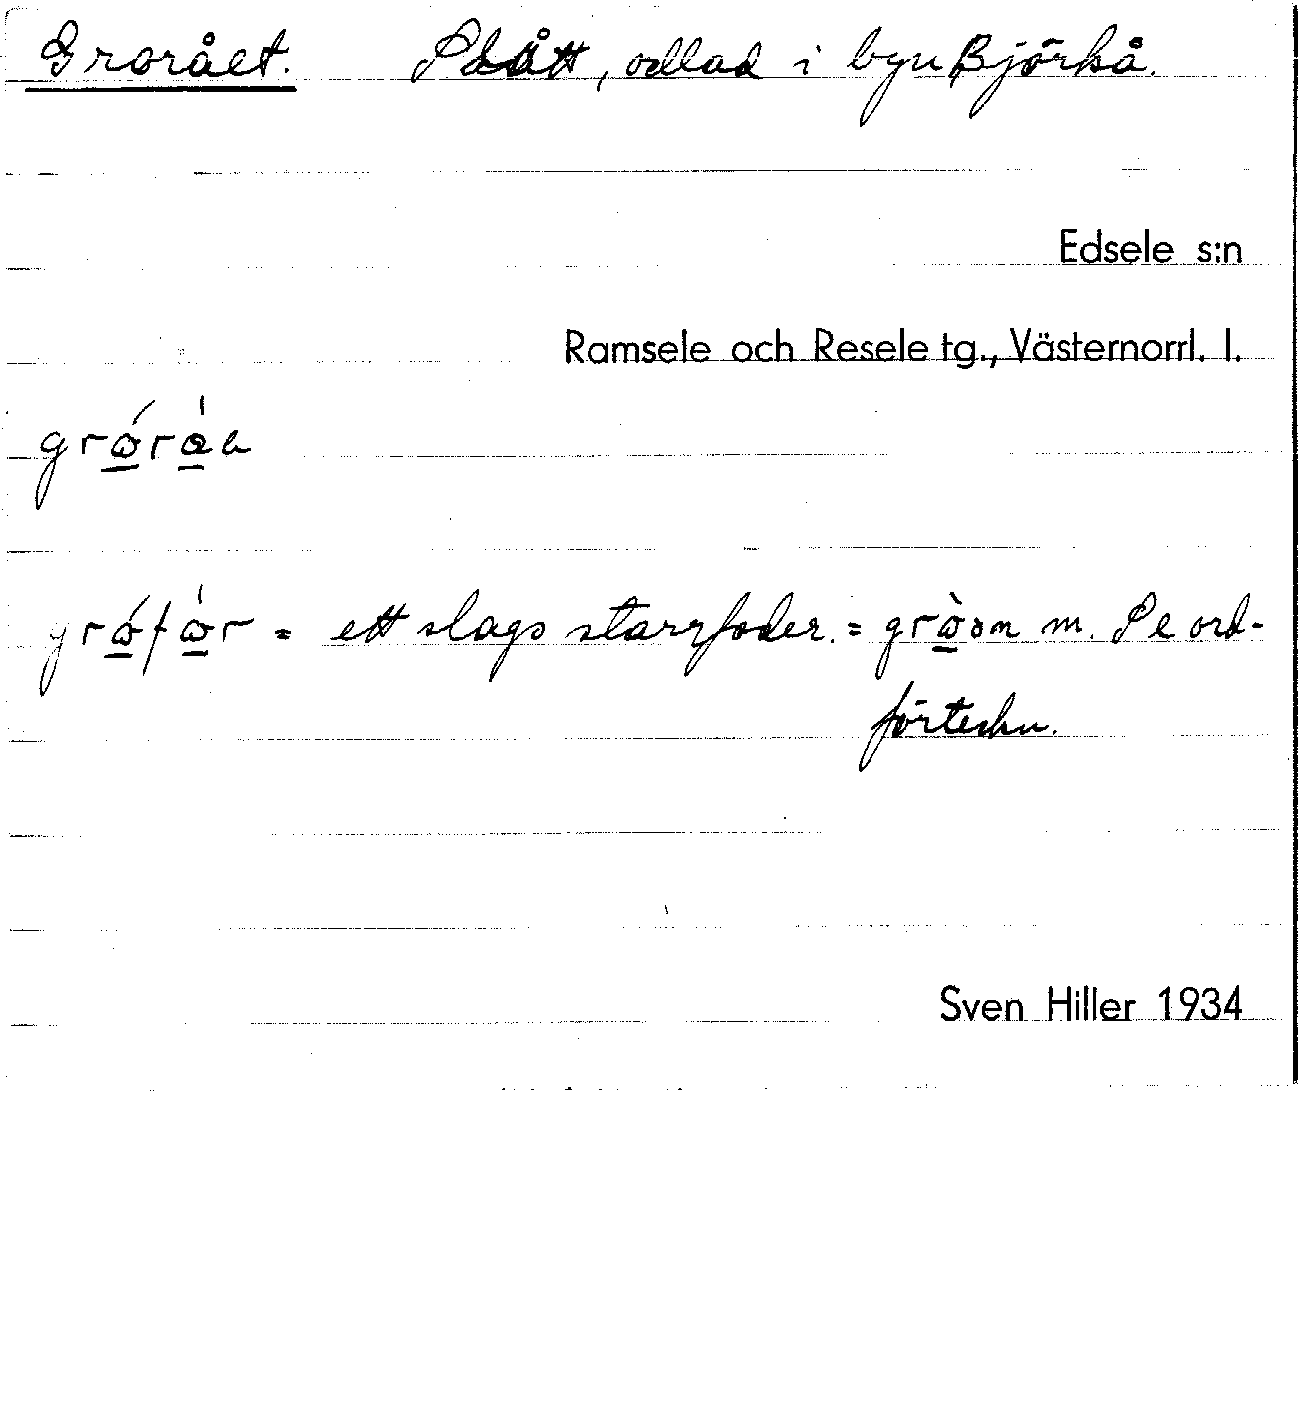 Grorået. Slått, odlad i byn Björkå.
Edsele s:n
Ramsele och Resele tg., Västernorrl. l.
= ett slags starrfoder. = m. Se ord-
förteckn.
Sven Hiller 1934